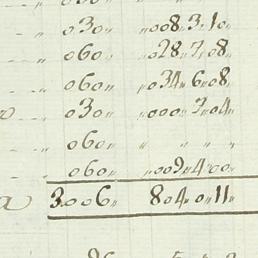 030,, ,,008,,3,,10,,
060,, ,,028,,7,,08,,
060,, ,,034,,6,,08,,
030,, ,,000,,7,,04,,
060,, ,, ,, ,,
060,, ,,009,,4,,00,,
3.006,, 804,,0,,11,,